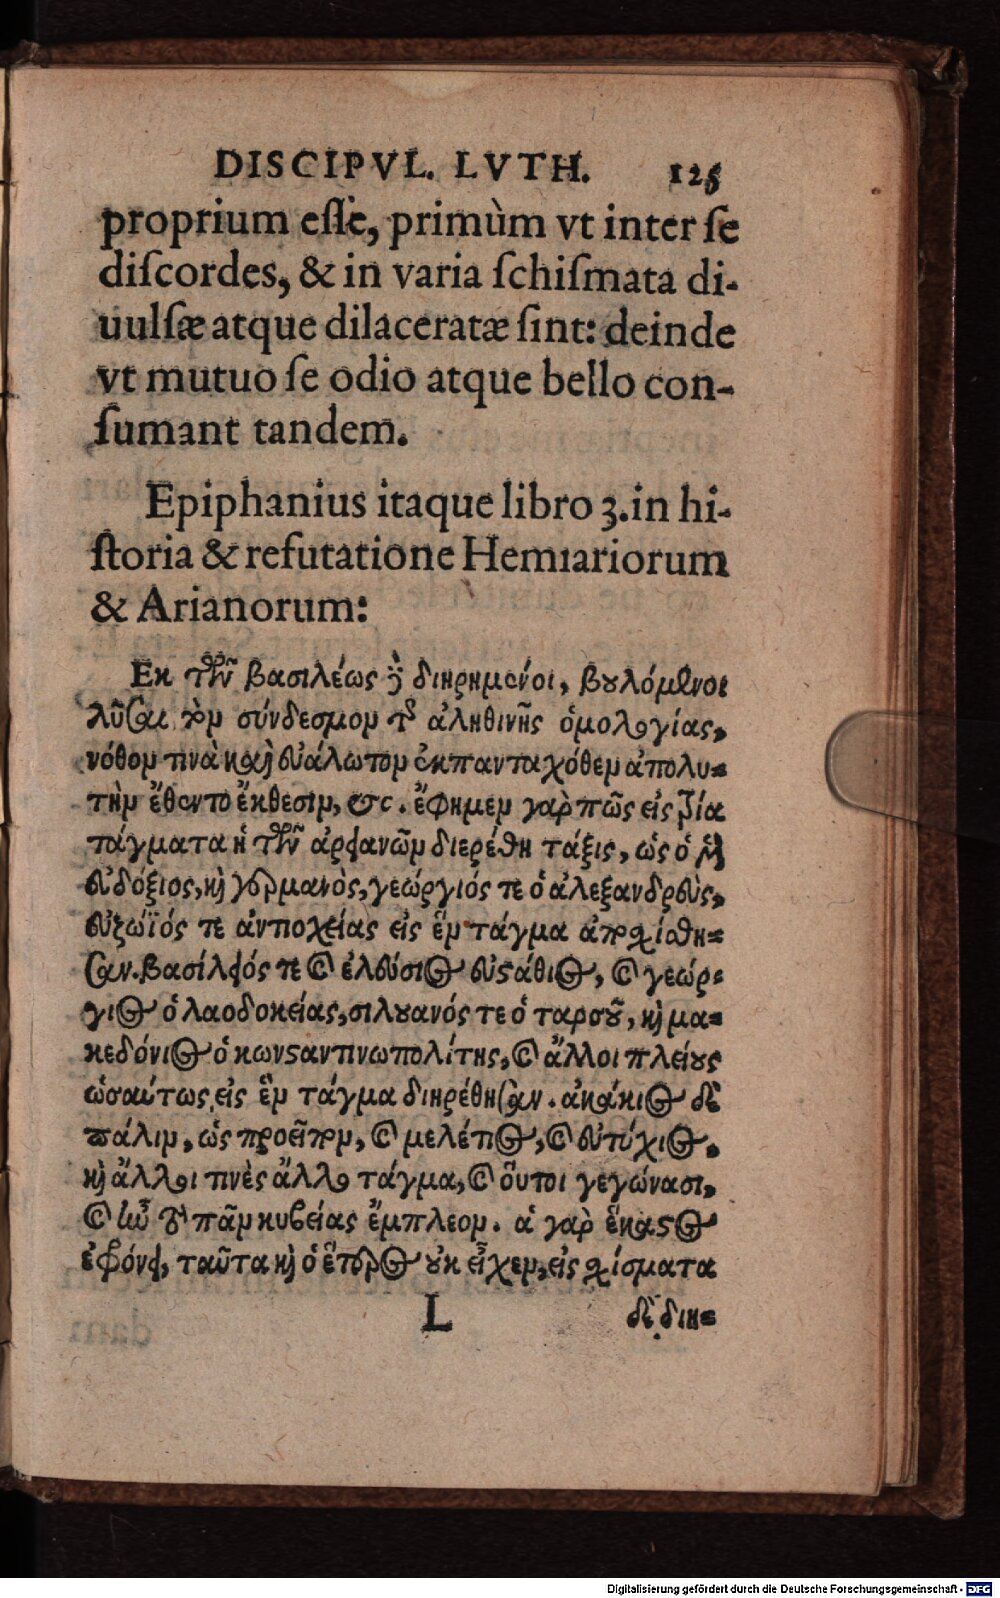 DISCIPVL. LVTH. 125
proprium esse, primùm vt inter se
discordes, & in varia schismata di-
uulsæ atque dilaceratæ sint: deinde
vt mutuo se odio atque bello con-
sumant tandem.
Epiphanius itaque libro 3. in hi-
storia & refutatione Hemiariorum
& Arianorum:
Εκ τῶν βασιλέως διηρημένοι, βουλόμενοι
λῦσαι τὸν σύνδεσμον τῆς ἀληθινῆς ὁμολογίας,
νόθον τινὰ καὶ εὐάλωτον ἐκπανταχόθεν ἀπολυ-
τὴν ἔθεντο ἔκθεσιν, &c. ἔφημεν γαρ πῶς εἰς τρία
τάγματα ἡ τῶν ἀρφανῶν διερέθη τάξις, ὡς ὁ μὲν
εὐδόξιος, καὶ γερμανὸς, γεώργιός τε ὁ ἀλεξανδρεὺς,
εὐζώϊός τε ἀντιοχείας εἰς ἓν τάγμα ἀπεσχίσθη-
σαν. βασίλειός τε καὶ ἐλεύσιος εὐστάθιος, καὶ γεώρ-
γιος ὁ λαοδοκείας, σιλουανός τε ὁ ταρσοῦ, καὶ μα-
κεδόνιος ὁ κωνσταντινωπολίτης, καὶ ἄλλοι πλείους
ὡσαύτως εἰς ἓν τάγμα διηρέθησαν. ἀκάκιος δὲ
πάλιν, ὡς προεῖπον, καὶ μελέτιος, καὶ εὐτύχιος,
καὶ ἄλλοι τινὲς ἄλλο τάγμα, καὶ οὗτοι γεγώνασι,
καὶ ἦν τὸ πᾶν κυβείας ἔμπλεον. ἃ γαρ ἕκαστος
ἐφρόνει, ταῦτα καὶ ὁ ἕτερος οὐκ εἶχεν, εἰς σχίσματα
L δὲ διη-
Digitalisierung gefördert durch die Deutsche Forschungsgemeinschaft - DFG